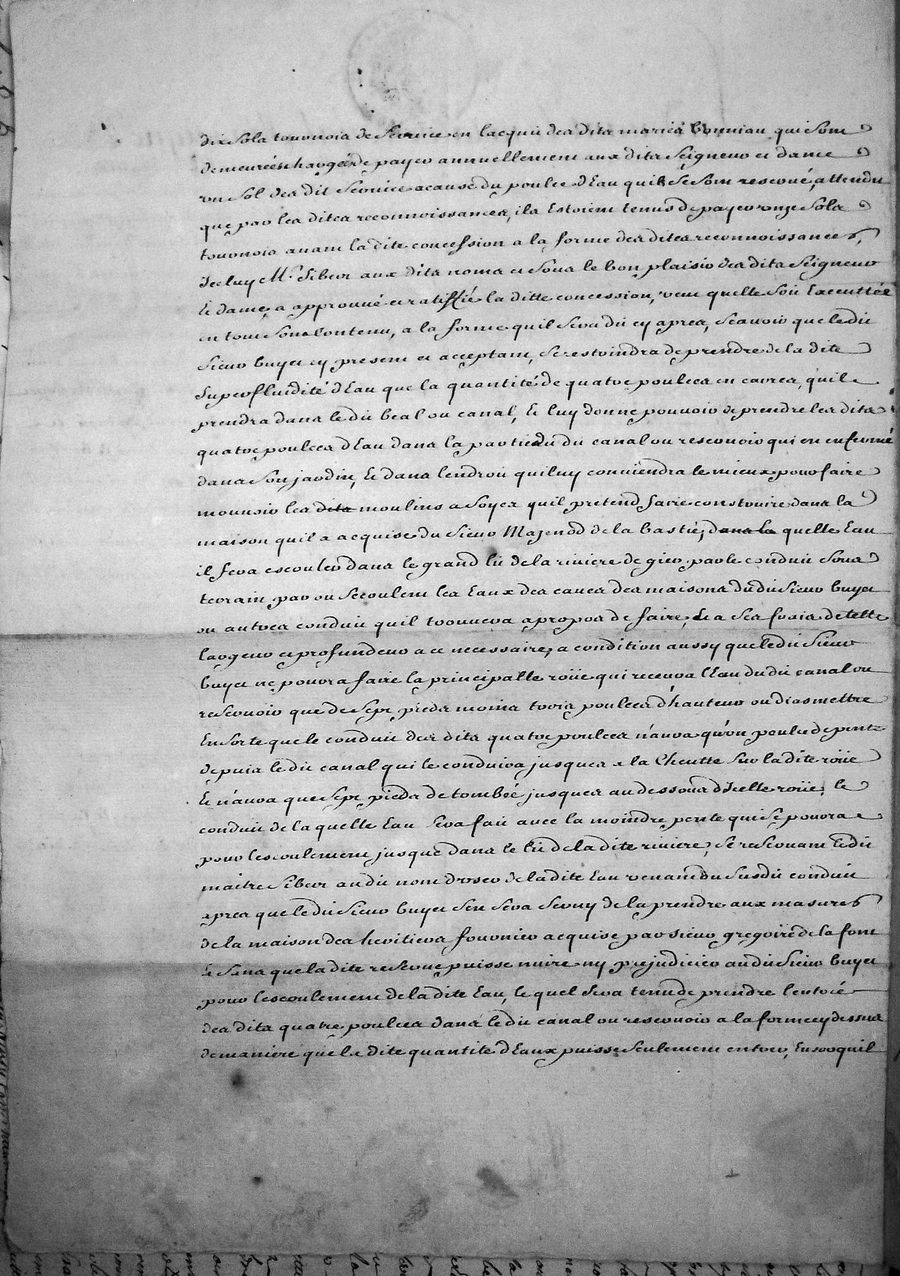 dix sols tournois de service en lacquit des dits mariés bonniau, qui som
demeurés chargés de payer annuellement aux dits Seigneur et dame
un sol des dit Service acause du poulce d'Eau quils se som reservé, attendu
que par les dites reconnoissances, ils Estoiem tenus de payer onze sols
tournois avam la dite concession a la forme des dites reconnoissances,
Iceluy Mr. Sibeur aux dits noms et sous le bon plaisir des dits Seigneur
Et dame, a approuvé et ratiffié la ditte concession, veut quelle soit Executtée
en tout son Contenu, a la forme quil sera dit cy apres, scavoir que ledit
Sieur buyet cy present et acceptam, se restraindra de prendre de la dite
Superfluidité d'Eau que la quantité de quatre poulces en carres, quil
prendra dans le dit beal ou canal, Et luy donne pouvoir de prendre les dits
quatre poulces d'Eau dans la partie dudit canal ou reservoir qui en enfermé
dans son jardin, Et dans lendroit quil luy conviendra le mieux pour faire
mouvoir les dits moulins a soyes quil pretend faire construire dans la
maison quil a acquise du Sieur Majend de la bastie, dans la quelle Eau
il fera escouler dans le grand lit de la riviere de gier, par le conduit sous
terrain par ou secoulent les Eaux des caves des maisons dudit Sieur buyet
ou autres conduit quil trouvera apropos de faire, Et a ses frais de telle
largeur et profondeur a ce necessaire, a condition aussy que ledit Sieur
buyet ne pourra faire la principalle roüe qui recevra l'Eau dudit canal ou
reservoir que de sept pieds moins trois poulces d'hauteur ou diasmettre
En sorte que le conduit des dits quatre poulces n'aura qu'un poulce de pente
depuis le dit canal qui le conduira jusques a la Cheutte sur la dite roüe
Et n'aura que sept pieds de tombée jusques au dessous d'icelle roüe, le
conduit de la quelle Eau sera fait avec la moindre pente qui se pourra
pour lescoulement jusque dans le lit de la dite riviere, se reservant ledit
maitre Sibeur au dit nom droser de la dite Eau venant du susdit conduit
apres que ledit Sieur buyet sen sera servy de la prendre aux masures
de la maison des heritiers fournier acquise par sieur gregoire de la font
Et sans que la dite reserve puisse nuire ny prejudicier audit Sieur buyet
pour lescoulement de la dite Eau, le quel sera tenu de prendre lentrée
des dits quatre poulces dans le dit canal ou reservoir a la forme cy dessus
de maniere que la dite quantité d'Eaux puisse seulement entrer, Ensorquil